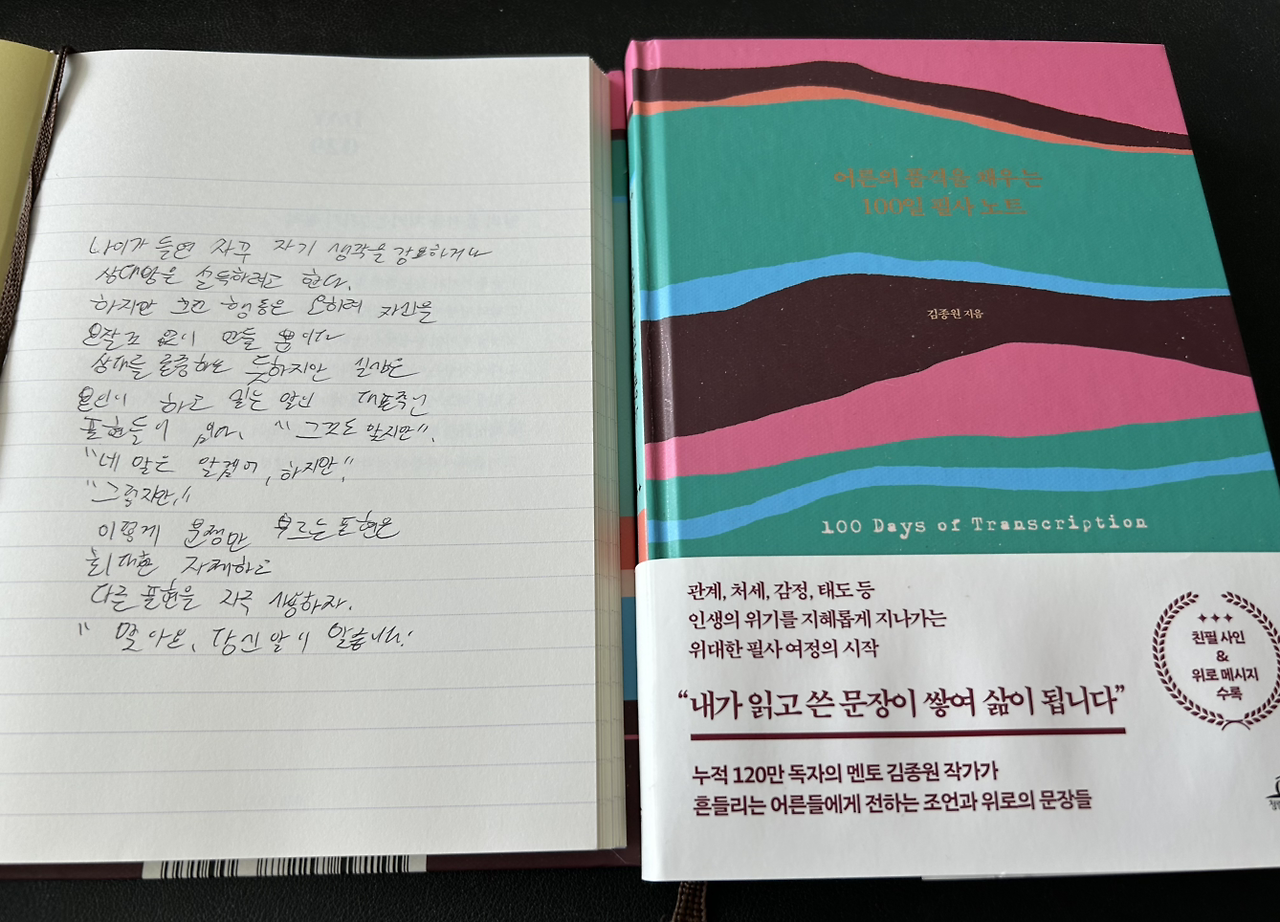 나이가 들면 자꾸 자기 생각을 강요하거나
상대방을 설득하려고 한다.
하지만 그런 행동은 오히려 자신을
만들 뿐이다
상대를 존중하는 듯하지만 실상은
하고 싶은 말인 대표적인
표현들이 있다. "그것도 알지만".
"네 말은 알겠어, 하지만,"
"그렇지만,"
이렇게 분쟁만 부르는 표현은
최대한 자제하고
다른 표현을 자주 사용하자.
" 맞아요, 당신 말이 맞습니다.
어른의 품격을 채우는
100일 필사 노트
김종원 지음
100 Days of Transcription
관계, 처세, 감정, 태도 등
인생의 위기를 지혜롭게 지나가는
위대한 필사 여정의 시작
"내가 읽고 쓴 문장이 쌓여 삶이 됩니다"
누적 120만 독자의 멘토 김종원 작가가
흔들리는 어른들에게 전하는 조언과 위로의 문장들
친필 사인
&
위로 메시지
수록